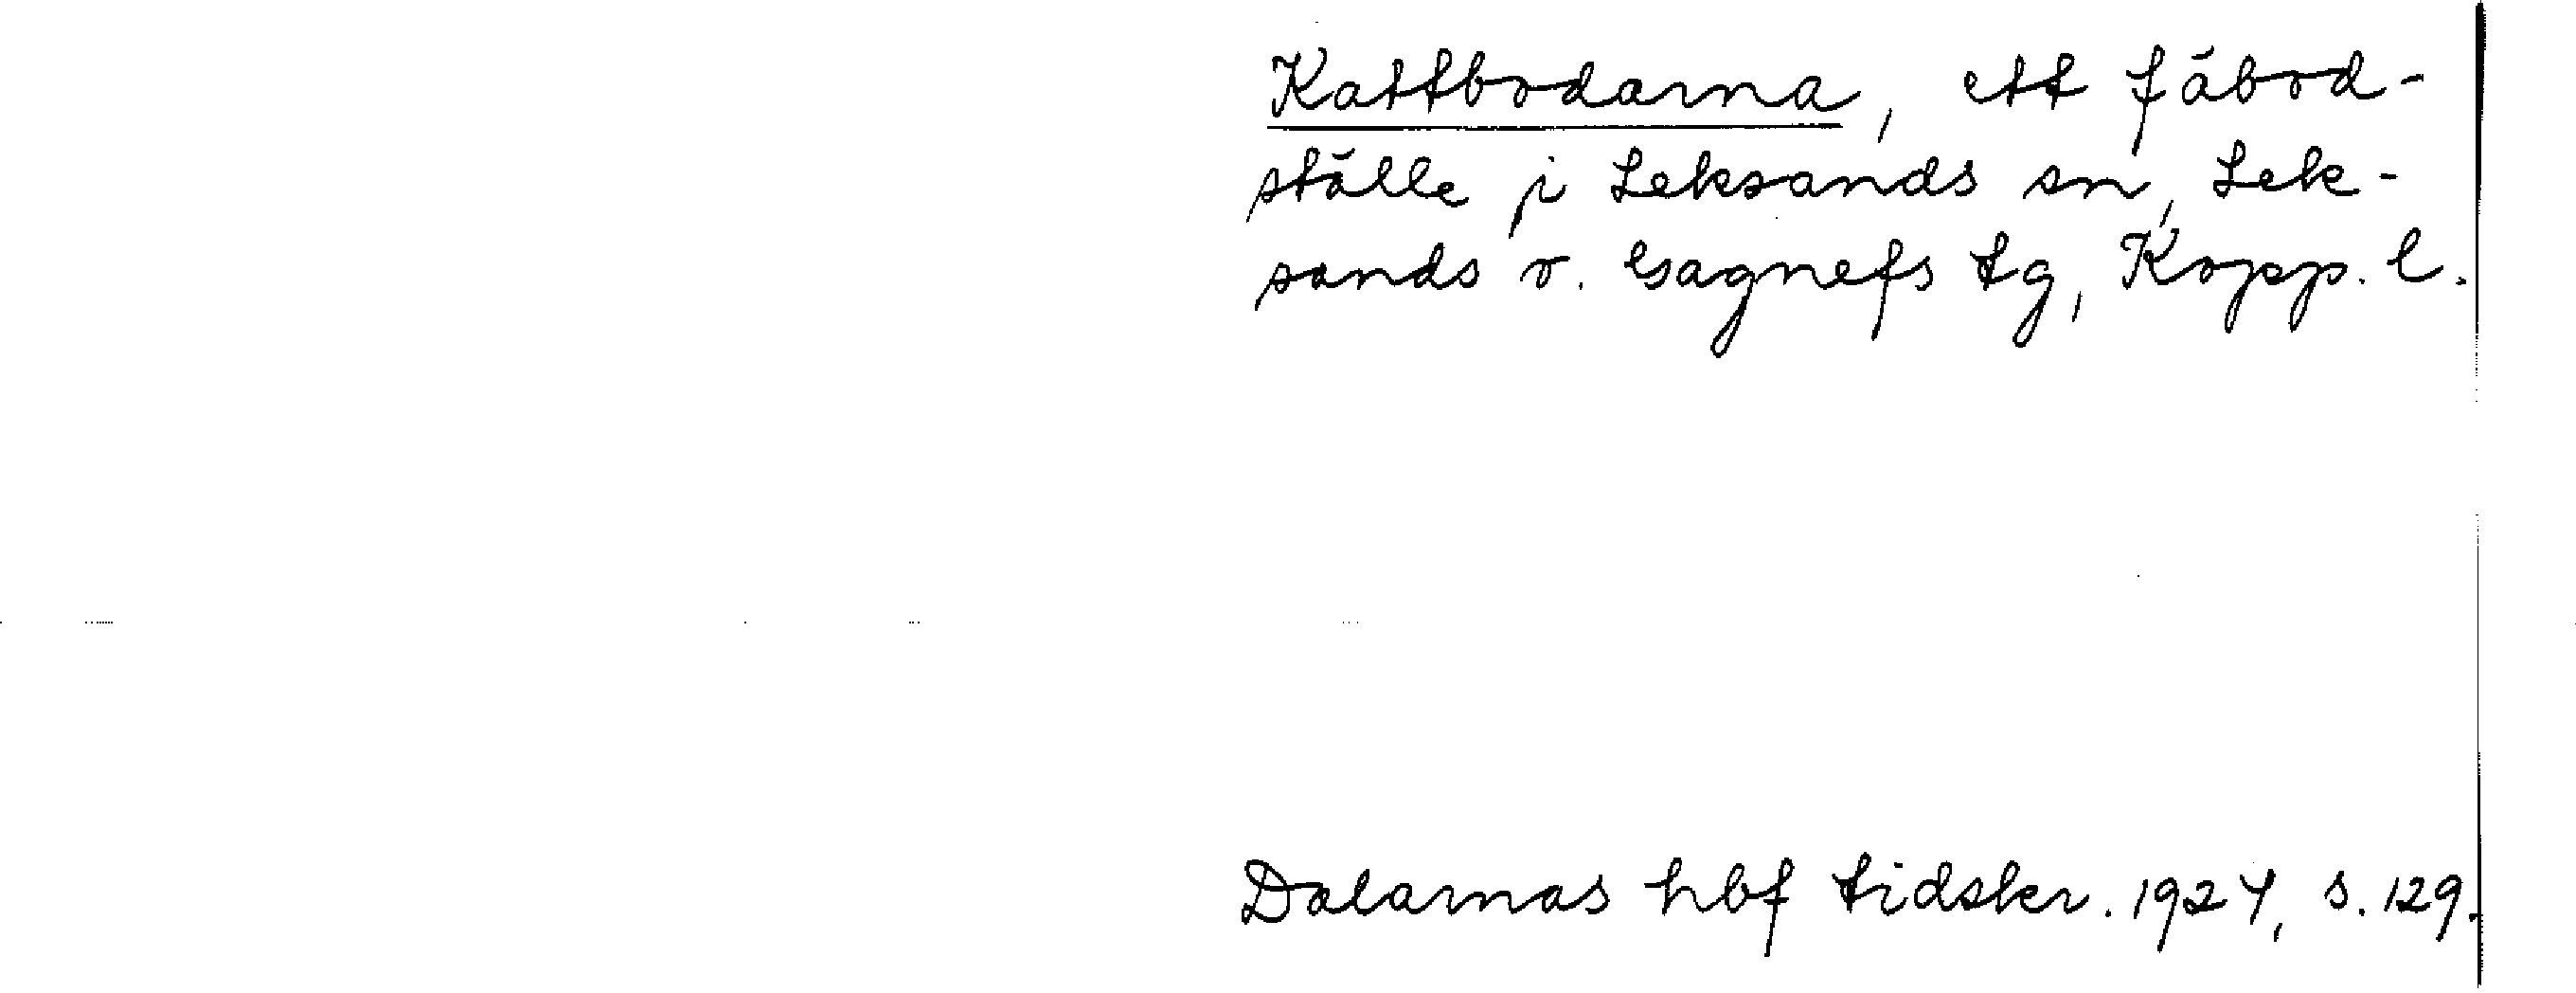 Kattbodarna, ett fäbod-
ställe i Leksands sn, Lek-
sands o. Gagnefs tg, Kopp. l.
Dalarnas hbf tidskr. 1924, s. 129.